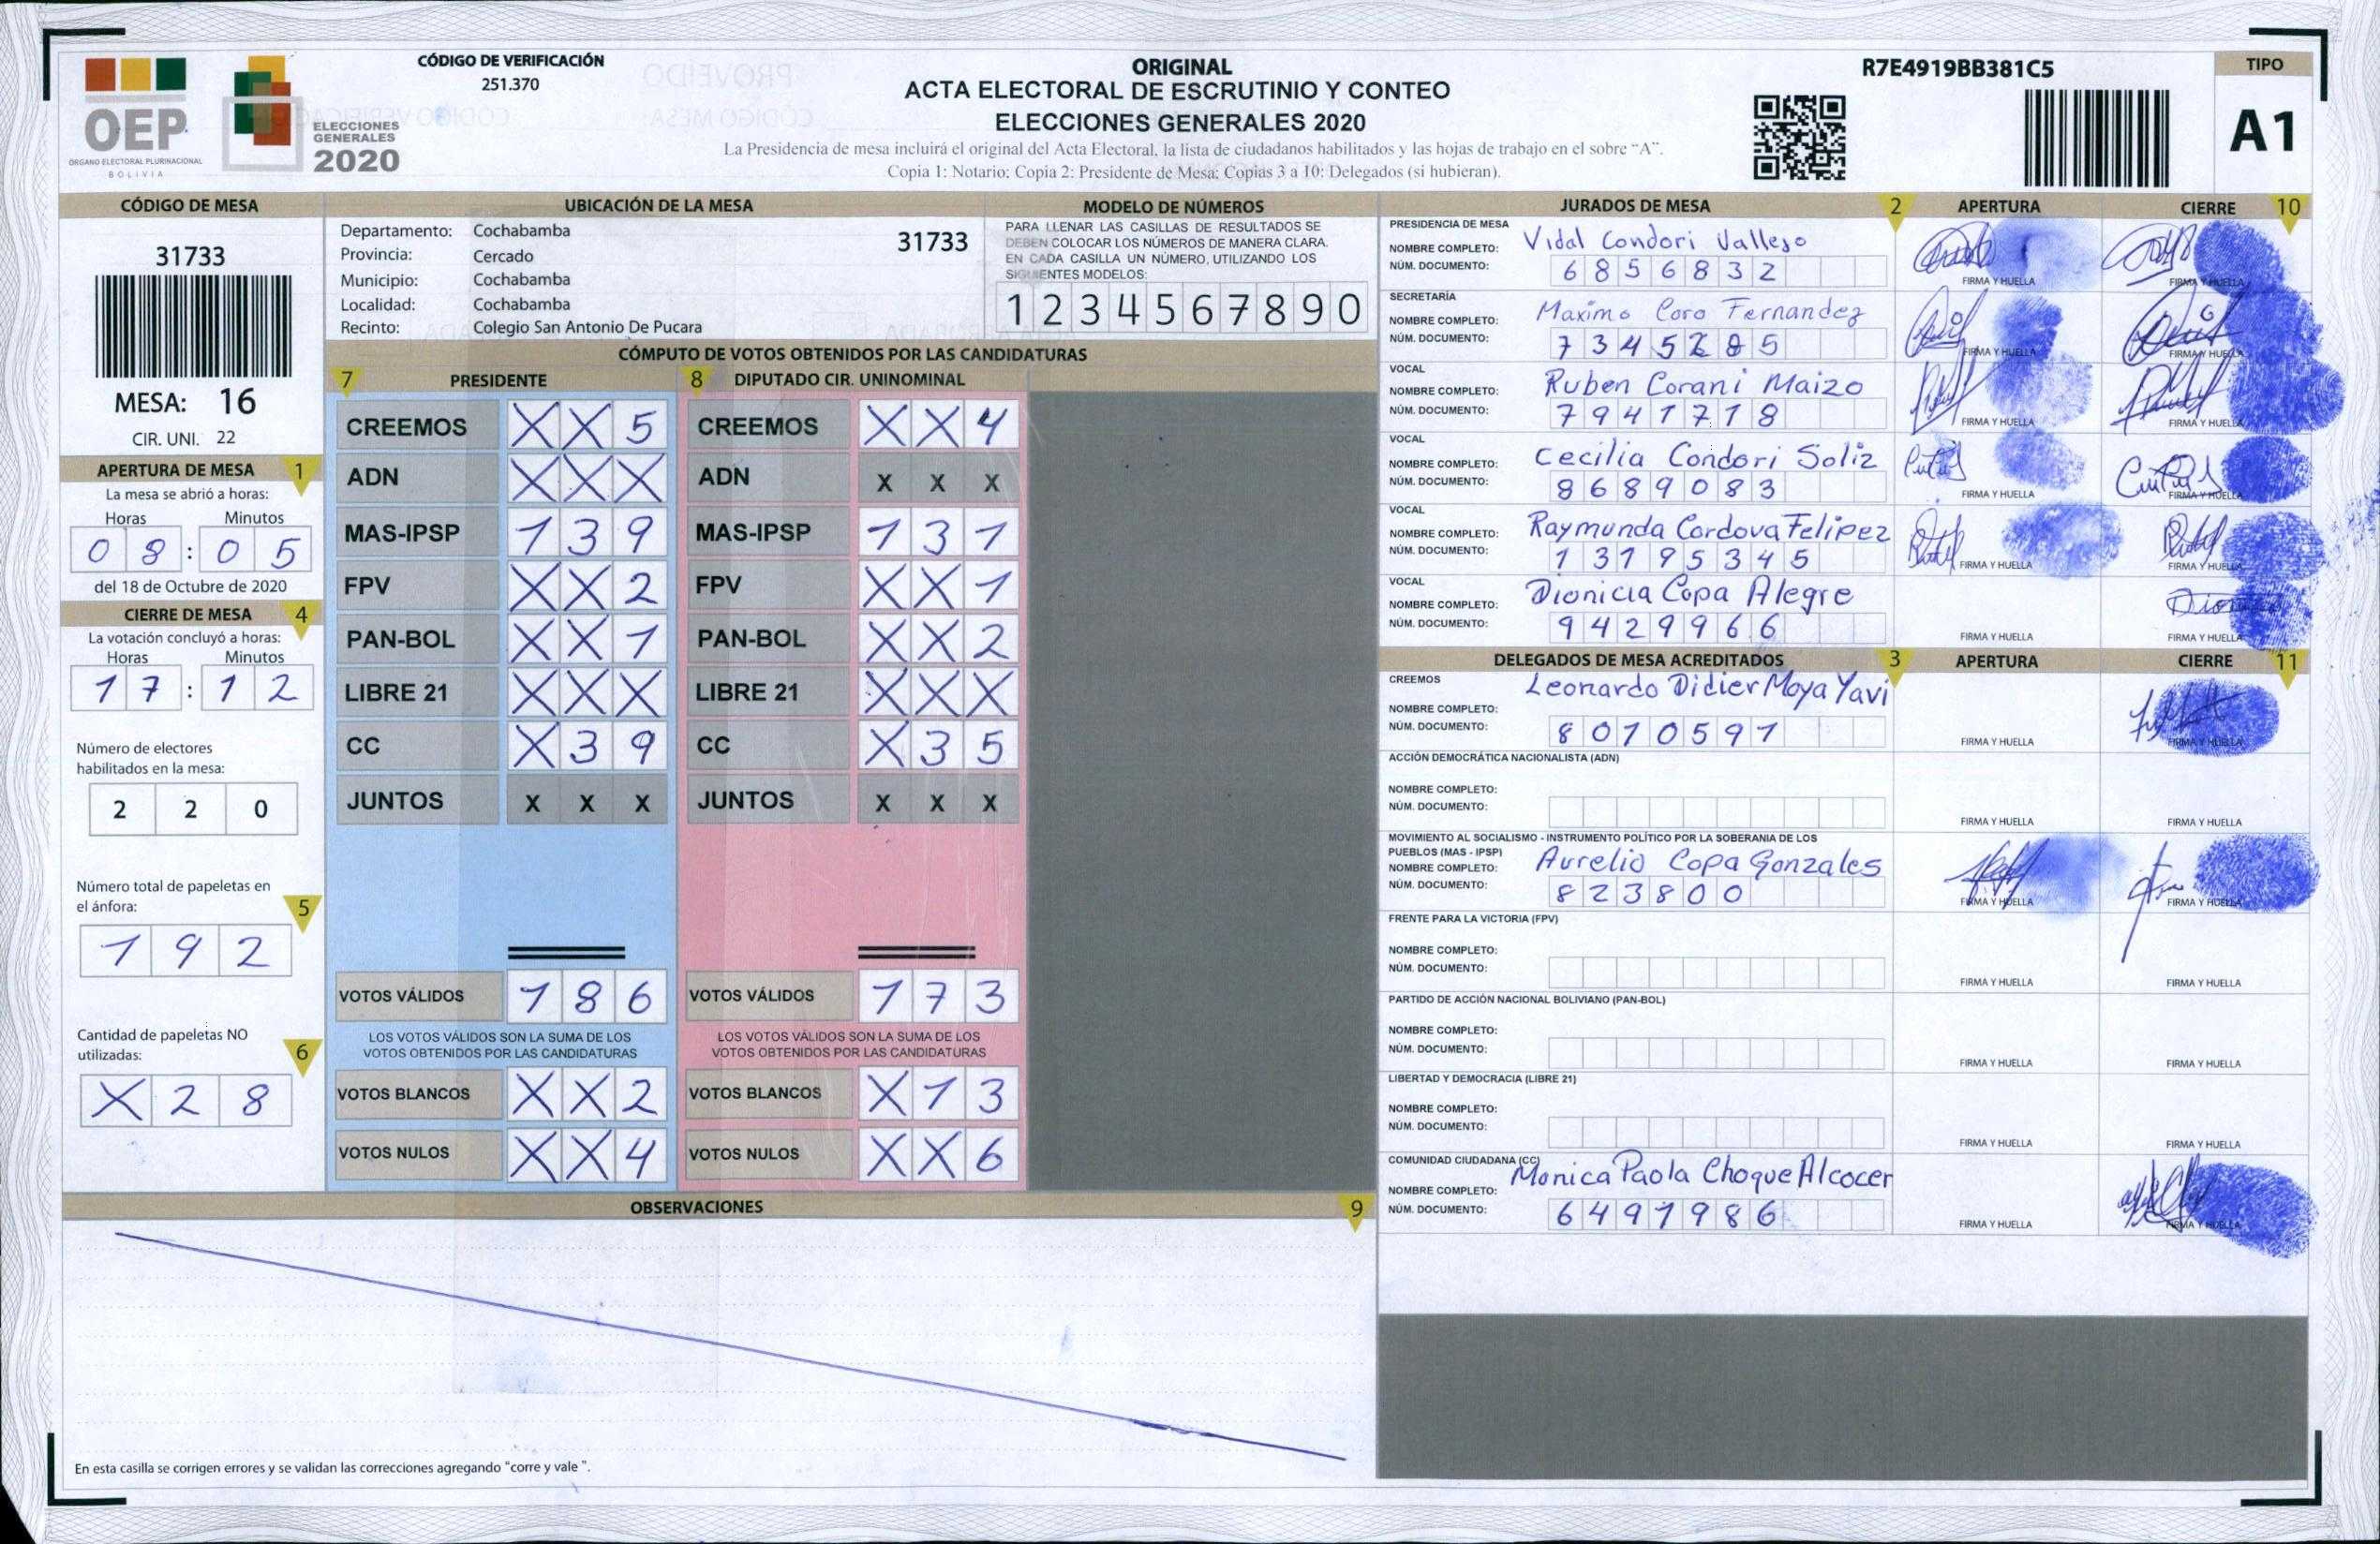 CÓDIGO DE VERIFICACIÓN
251.370
OEP
ÓRGANO ELECTORAL PLURINACIONAL
BOLIVIA
ELECCIONES
GENERALES
2020
ORIGINAL
ACTA ELECTORAL DE ESCRUTINIO Y CONTEO
ELECCIONES GENERALES 2020
La Presidencia de mesa incluirá el original del Acta Electoral, la lista de ciudadanos habilitados y las hojas de trabajo en el sobre “A”.
Copia 1: Notario; Copia 2: Presidente de Mesa; Copias 3 a 10: Delegados (si hubieran).
R7E4919BB381C5
TIPO
A1
CÓDIGO DE MESA
31733
MESA: 16
CIR. UNI. 22
UBICACIÓN DE LA MESA
Departamento: Cochabamba
31733
Provincia: Cercado
Municipio: Cochabamba
Localidad: Cochabamba
Recinto: Colegio San Antonio De Pucara
MODELO DE NÚMEROS
PARA LLENAR LAS CASILLAS DE RESULTADOS SE
DEBEN COLOCAR LOS NÚMEROS DE MANERA CLARA.
EN CADA CASILLA UN NÚMERO, UTILIZANDO LOS
SIGUIENTES MODELOS:
1 2 3 4 5 6 7 8 9 0
APERTURA DE MESA 1
La mesa se abrió a horas:
Horas Minutos
0 8 : 0 5
del 18 de Octubre de 2020
CIERRE DE MESA 4
La votación concluyó a horas:
Horas Minutos
1 7 : 1 2
Número de electores
habilitados en la mesa:
2 2 0
Número total de papeletas en
el ánfora: 5
1 9 2
Cantidad de papeletas NO
utilizadas: 6
X 2 8
CÓMPUTO DE VOTOS OBTENIDOS POR LAS CANDIDATURAS
7 PRESIDENTE 8 DIPUTADO CIR. UNINOMINAL
CREEMOS X X 5 CREEMOS X X 4
ADN X X X ADN X X X
MAS-IPSP 1 3 9 MAS-IPSP 1 3 1
FPV X X 2 FPV X X 1
PAN-BOL X X 1 PAN-BOL X X 2
LIBRE 21 X X X LIBRE 21 X X X
CC X 3 9 CC X 3 5
JUNTOS X X X JUNTOS X X X
VOTOS VÁLIDOS 1 8 6 VOTOS VÁLIDOS 1 7 3
LOS VOTOS VÁLIDOS SON LA SUMA DE LOS LOS VOTOS VÁLIDOS SON LA SUMA DE LOS
VOTOS OBTENIDOS POR LAS CANDIDATURAS VOTOS OBTENIDOS POR LAS CANDIDATURAS
VOTOS BLANCOS X X 2 VOTOS BLANCOS X 1 3
VOTOS NULOS X X 4 VOTOS NULOS X X 6
OBSERVACIONES 9
En esta casilla se corrigen errores y se validan las correcciones agregando “corre y vale ”.
JURADOS DE MESA 2 APERTURA CIERRE 10
PRESIDENCIA DE MESA
NOMBRE COMPLETO: Vidal Condori Vallejo
NÚM. DOCUMENTO: 6 8 5 6 8 3 2
FIRMA Y HUELLA FIRMA Y HUELLA
SECRETARÍA
NOMBRE COMPLETO: Maximo Coro Fernandez
NÚM. DOCUMENTO: 7 3 4 5 8 5
FIRMA Y HUELLA FIRMA Y HUELLA
VOCAL
NOMBRE COMPLETO: Ruben Corani Maizo
NÚM. DOCUMENTO: 7 9 4 1 7 1 8
FIRMA Y HUELLA FIRMA Y HUELLA
VOCAL
NOMBRE COMPLETO: Cecilia Condori Soliz
NÚM. DOCUMENTO: 8 6 8 9 0 8 3
FIRMA Y HUELLA FIRMA Y HUELLA
VOCAL
NOMBRE COMPLETO: Raymunda Cordova Felipez
NÚM. DOCUMENTO: 1 3 7 9 5 3 4 5
FIRMA Y HUELLA FIRMA Y HUELLA
VOCAL
NOMBRE COMPLETO: Dionicia Copa Alegre
NÚM. DOCUMENTO: 9 4 2 9 9 6 6
FIRMA Y HUELLA FIRMA Y HUELLA
DELEGADOS DE MESA ACREDITADOS 3 APERTURA CIERRE 11
CREEMOS
NOMBRE COMPLETO: Leonardo Didier Moya Yavi
NÚM. DOCUMENTO: 8 0 1 0 5 9 1
FIRMA Y HUELLA FIRMA Y HUELLA
ACCIÓN DEMOCRÁTICA NACIONALISTA (ADN)
NOMBRE COMPLETO:
NÚM. DOCUMENTO:
FIRMA Y HUELLA FIRMA Y HUELLA
MOVIMIENTO AL SOCIALISMO - INSTRUMENTO POLÍTICO POR LA SOBERANIA DE LOS
PUEBLOS (MAS - IPSP)
NOMBRE COMPLETO: Aurelio Copa Gonzales
NÚM. DOCUMENTO: 8 2 3 8 0 0
FIRMA Y HUELLA FIRMA Y HUELLA
FRENTE PARA LA VICTORIA (FPV)
NOMBRE COMPLETO:
NÚM. DOCUMENTO:
FIRMA Y HUELLA FIRMA Y HUELLA
PARTIDO DE ACCIÓN NACIONAL BOLIVIANO (PAN-BOL)
NOMBRE COMPLETO:
NÚM. DOCUMENTO:
FIRMA Y HUELLA FIRMA Y HUELLA
LIBERTAD Y DEMOCRACIA (LIBRE 21)
NOMBRE COMPLETO:
NÚM. DOCUMENTO:
FIRMA Y HUELLA FIRMA Y HUELLA
COMUNIDAD CIUDADANA (CC)
NOMBRE COMPLETO: Monica Paola Choque Alcocer
NÚM. DOCUMENTO: 6 4 9 1 9 8 6
FIRMA Y HUELLA FIRMA Y HUELLA